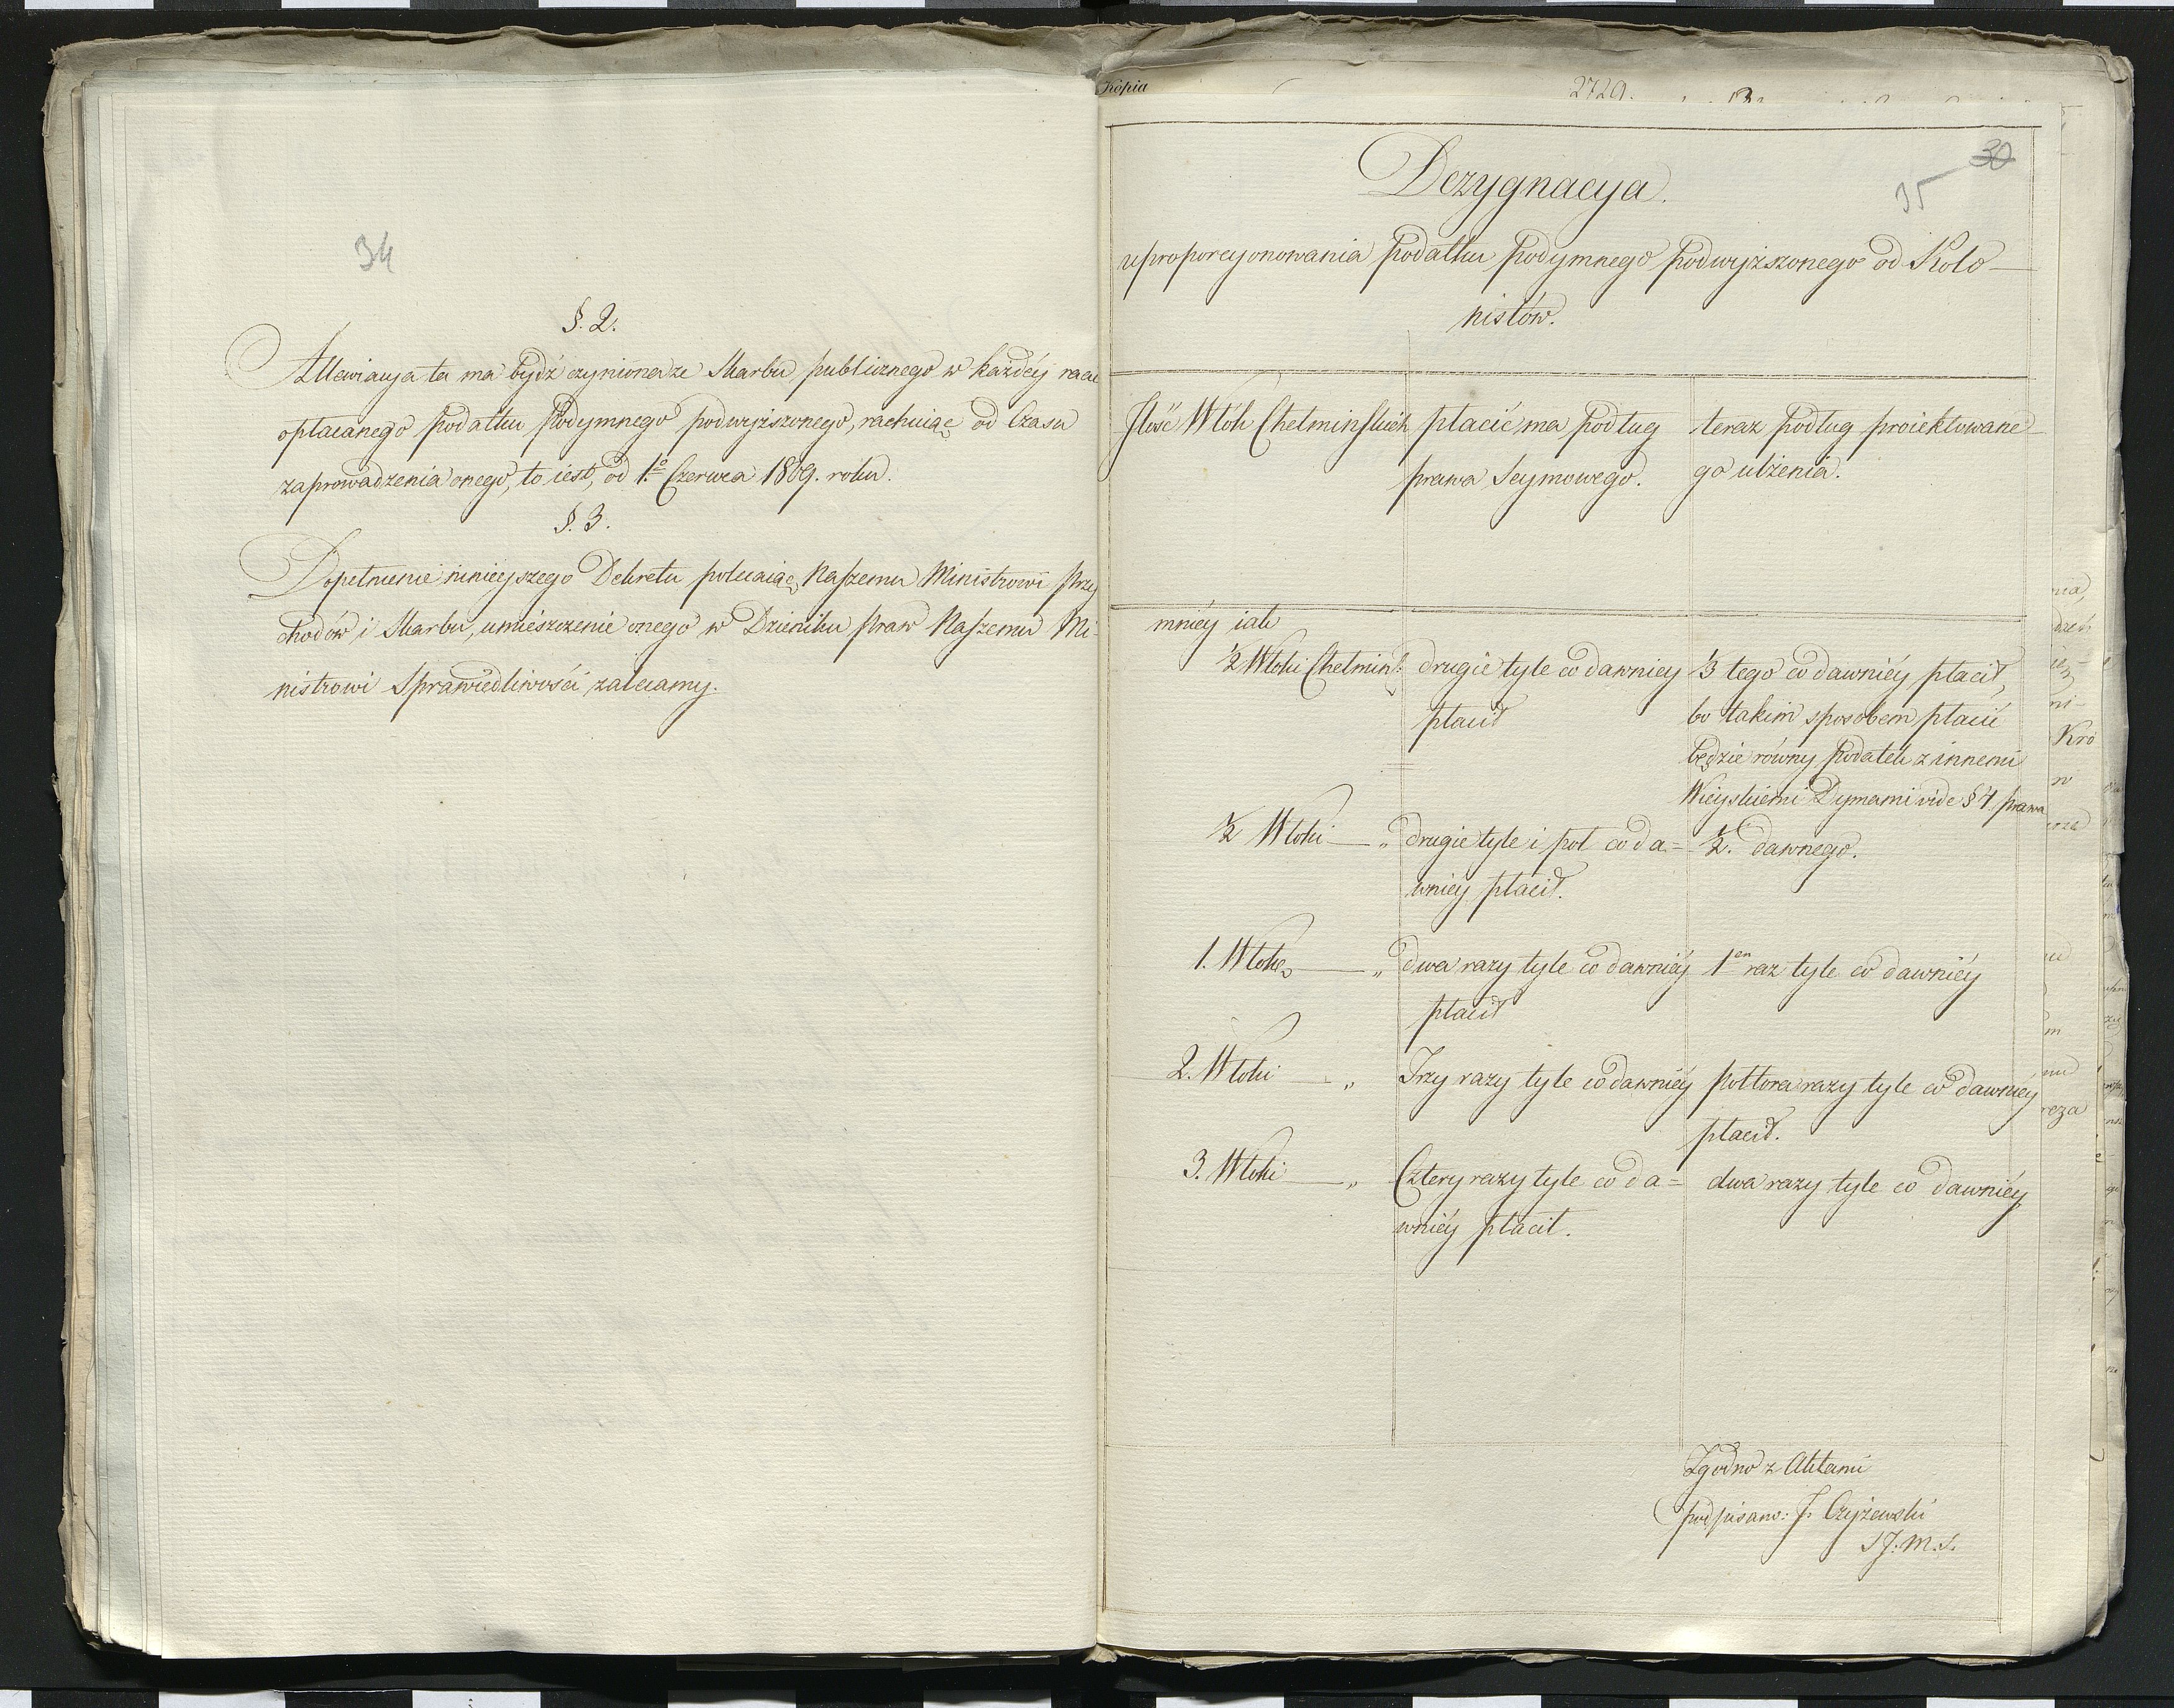 34
§. 2.
Allewiacya ta ma bydź czyniona ze Skarbu publicznego w każdéy racie
opłacanego podatku Podymnego podwyższonego, rachuiąc od Czasu
zaprowadzenia onego, to iest, od 1º Czerwca 1809. roku.
§. 3.
Dopełnienie ninieyszego Dekretu polecaiąc Naszemu Ministrowi Przy
chodów i Skarbu, umieszczenie onego w Dzieniku praw Naszemu Mi-
nistrowi Sprawiedliwości zalecamy.
Kopia
2729.
30
35
Dezygnacya.
uproporcyonowania podatku podymnego podwyższonego od Kolo-
nistów.
Ilość Włók Chełmińskich
płacić ma podług
prawa Seymowego.
teraz podług proiektowane-
go ulżenia.
mniéy iak
½ Włoki Chełmińs:
drugie tyle co dawniey
płacił
⅓ tego co dawniéy płacił,
bo takim sposobem płacić
będzie równy podatek z innemi
Wieyskiemi Dymami vide § 4 prawa
½ Włoki — „
drugie tyle i poł co da=
wniey płacił.
½. dawnego.
1. Włokę — „
dwa razy tyle co dawniéy
płacił
1en raz tyle co dawniéy
2. Włoki — „
Trzy razy tyle co dawniéy
półtora razy tyle co dawniéy
płacił.
3. Włoki — „
Cztery razy tyle co da=
wniéy płacił.
dwa razy tyle co dawniéy
Zgodno z Aktami
podpisano: J. Czyżewski